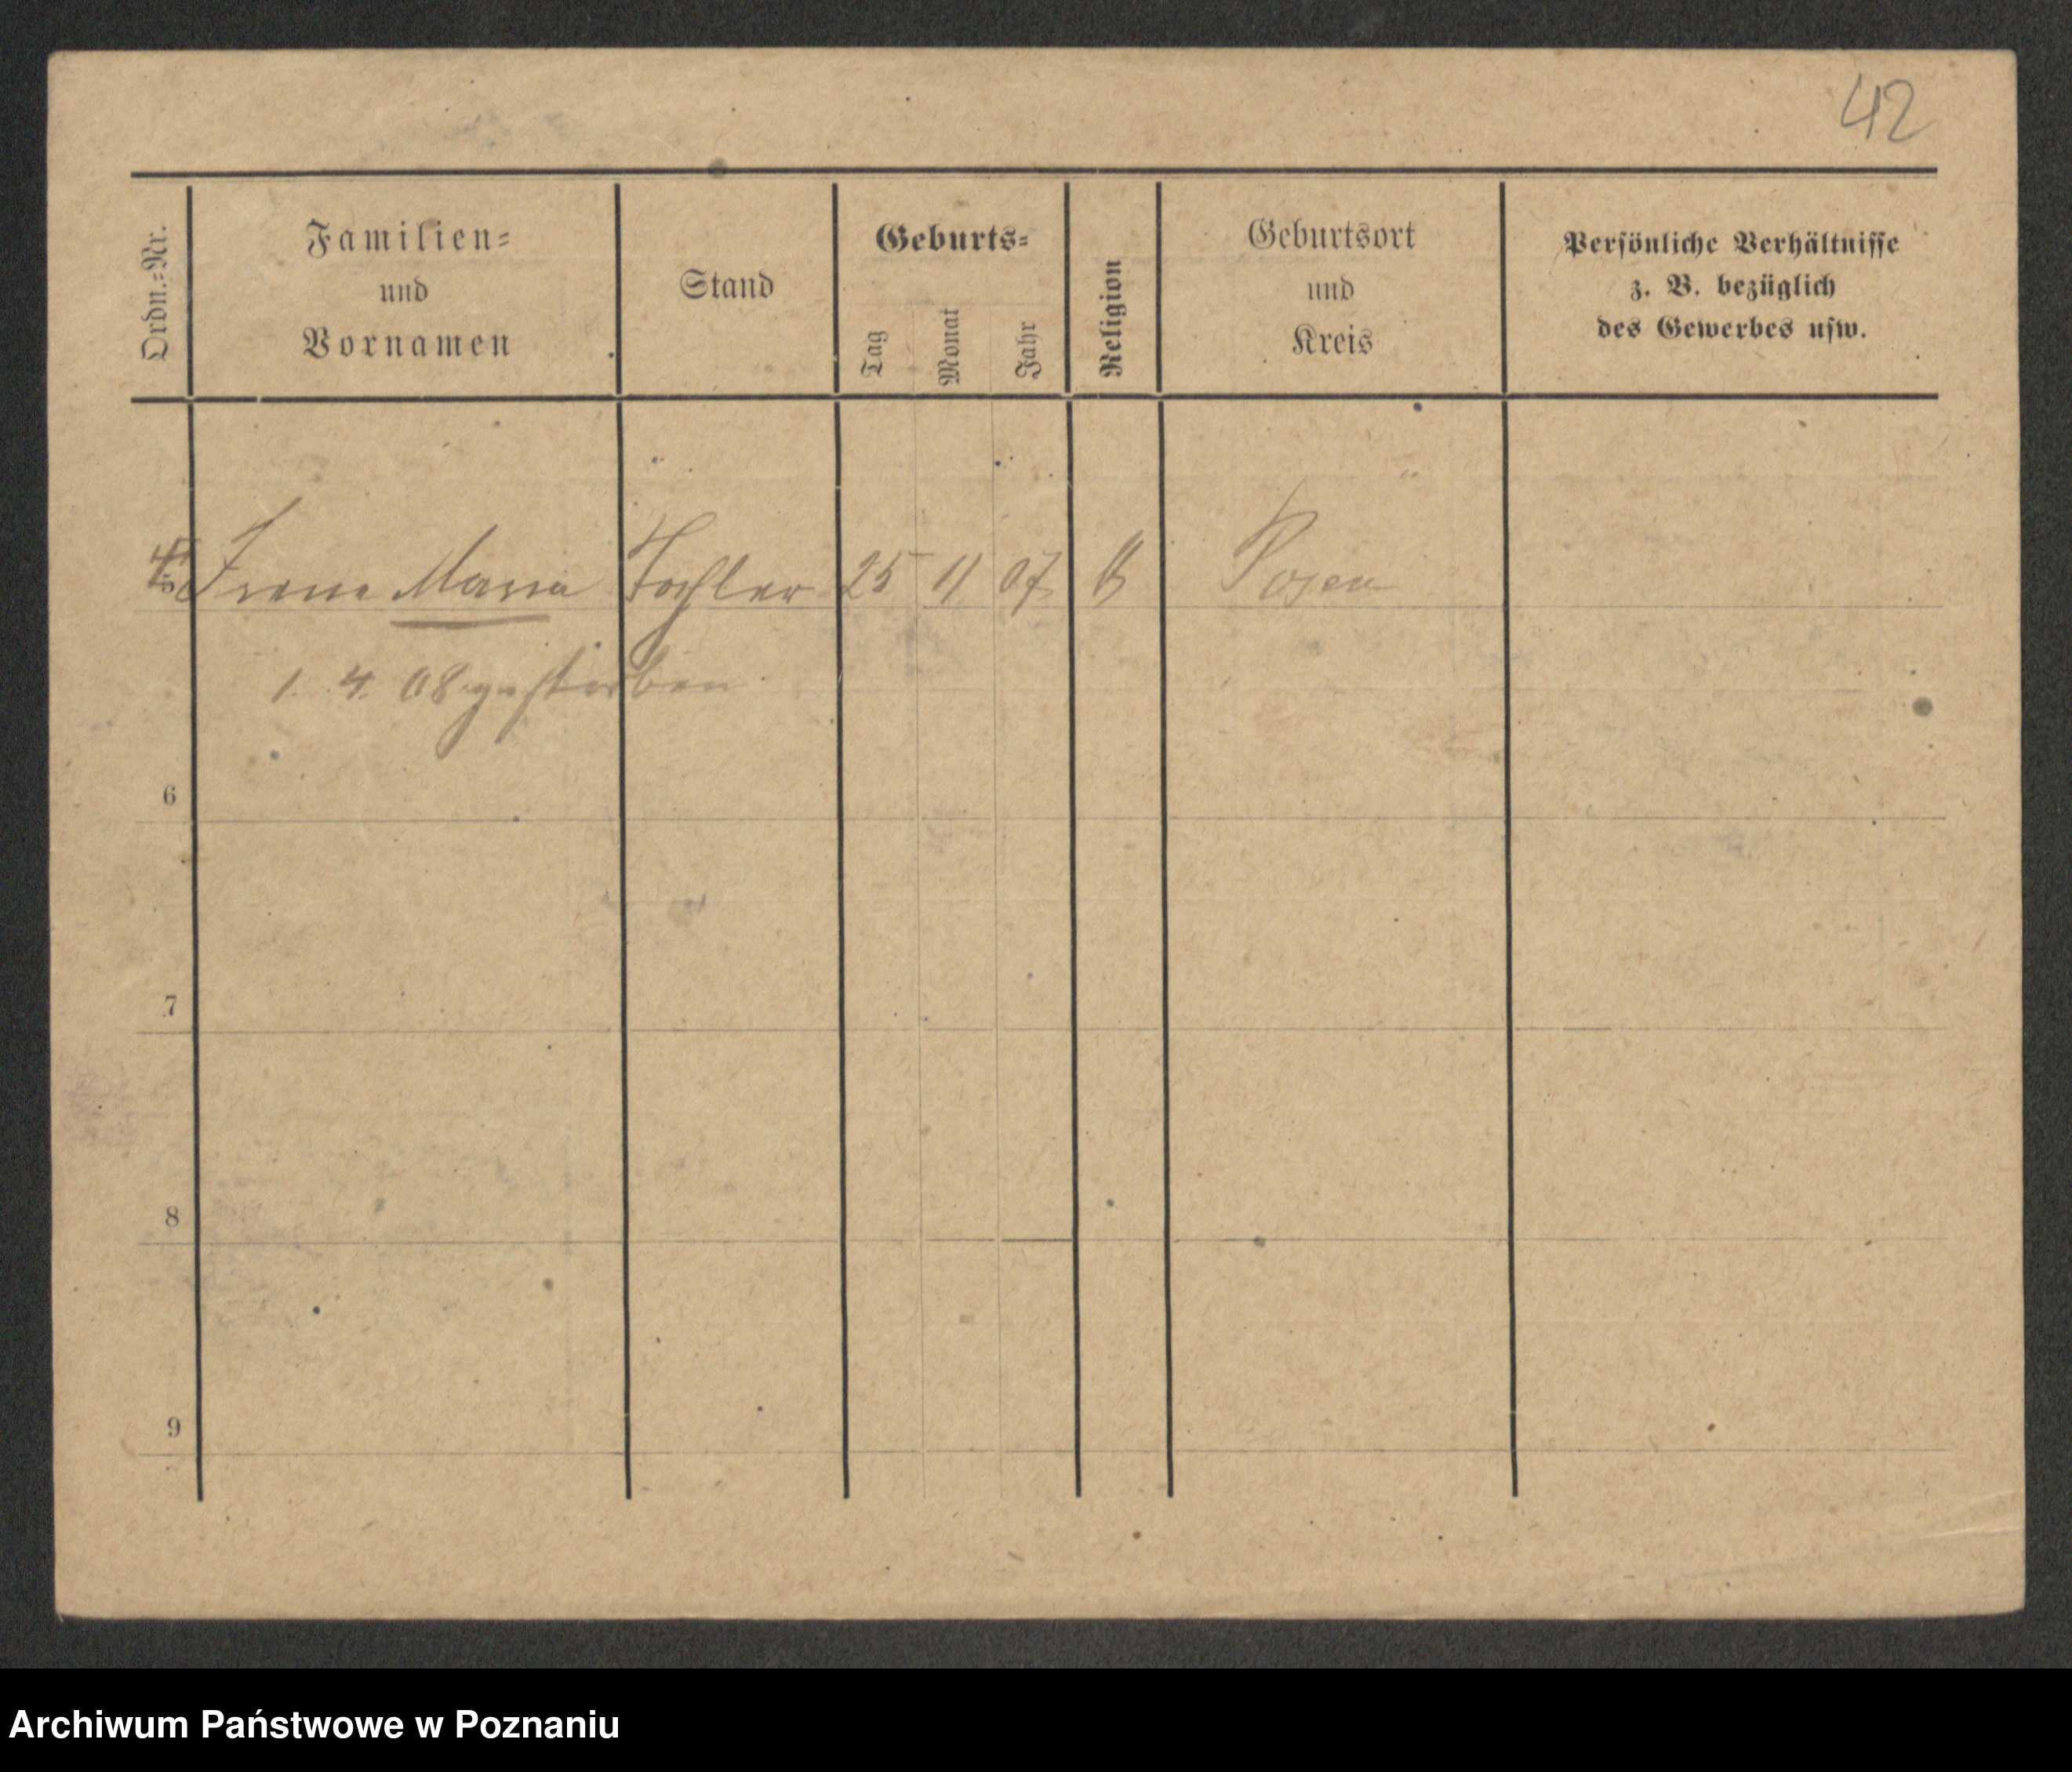 42
Ordn.-Nr.
Familien-
und
Vornamen
Stand
Geburts-
Tag
Monat
Jahr
Religion
Geburtsort
und
Kreis
Persönliche Verhältnisse
z. B. bezüglich
des Gewerbes usw.
Irene Maria Tochter 25 11 07 Posen
1. 4. 08 gestorben
6
7
8
9
Archiwum Państwowe w Poznaniu